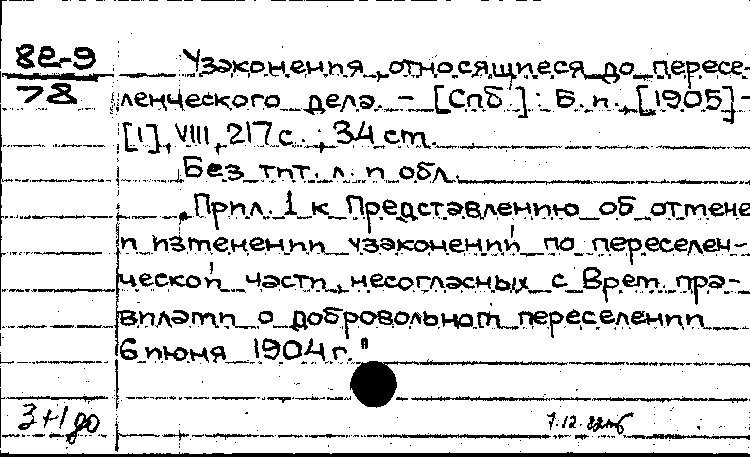 8е-9
78
Узаконения, относящиеся до пересе-
ленческого дела. - [Спб]: Б. п., [1905]-
[1], VIII, 217 с.; 34 см.
Без тит. л. и обл.
„Прил. 1 к Представлению об отмене
и изменении узаконений по переселен-
ческой части, несогласных с Врем. пра-
вилами о добровольном переселении
6 июня 1904 г."
3+1 до
7.12.82